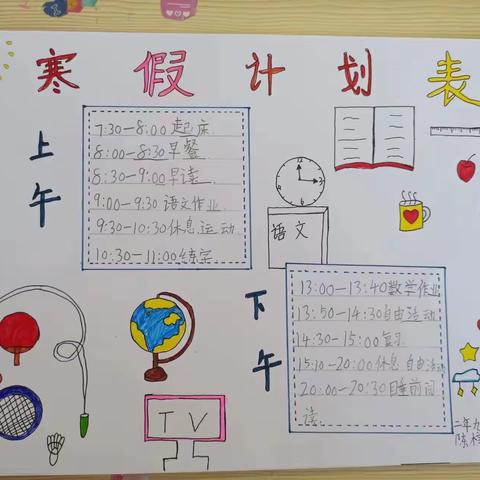 寒假计划表
上午
7:30—8:00 起床
8:00—8:30 早餐
8:30—9:00 早读
9:00—9:30 语文作业
9:30—10:30 休息运动
10:30—11:00 练字
语文
下午
13:00—13:40 数学作业
13:50—14:30 自由活动
14:30—15:00 复习
15:10—20:00 休息 自由活动
20:00—20:30 睡前阅
读
TV
二年九
陈